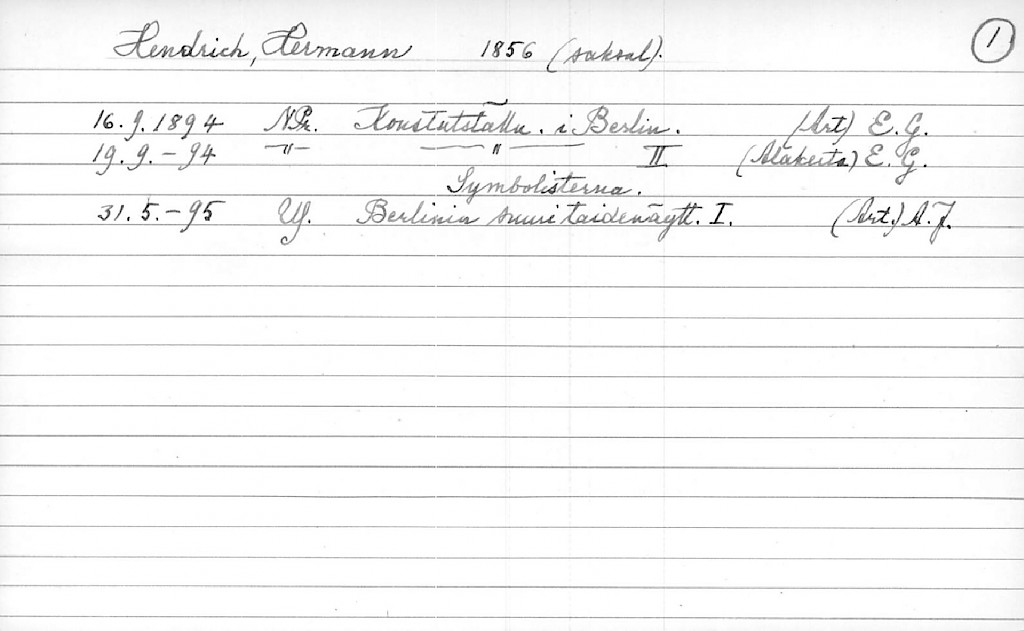 Hendrich, Hermann 1856 (saksal). 1
16.9.1894 N.Pr. Konstutställn. i Berlin. (Art) E.G.
19.9.-94 -"- -"- II (Alakerta) E.G.
Symbolisterna.
31.5.-95 Us. Berlinin suuri taidenäytt. I. (Art.) A.J.